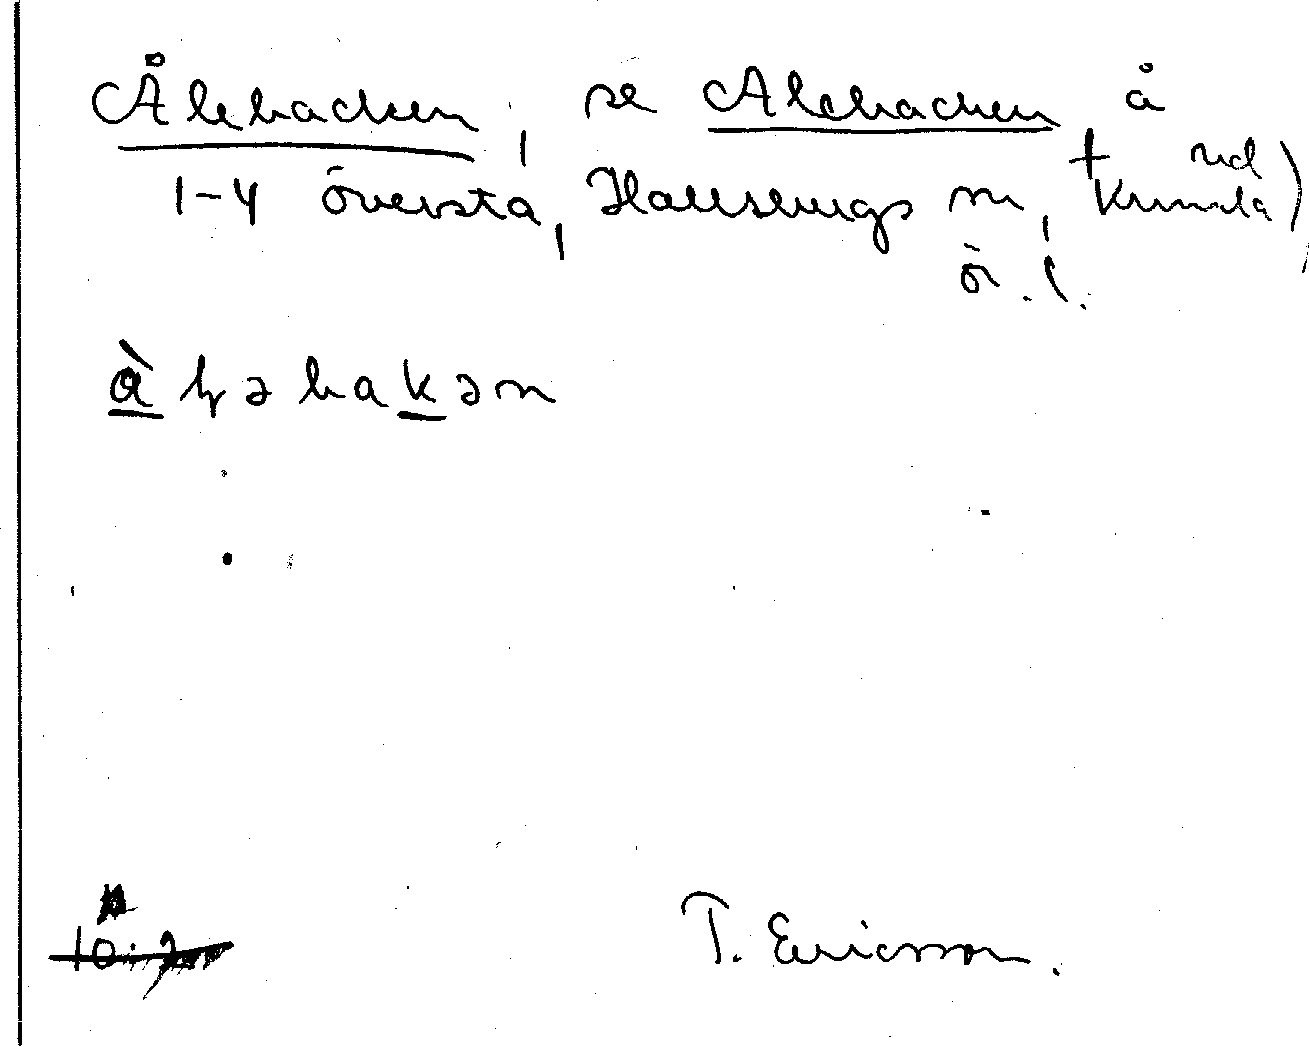 Ålebacken, se Alebacken, å
1-4 översta, Hallsbergs sn, (f. ned Kumla)
ö. l.
àlǝbakǝn
T. Ericsson.